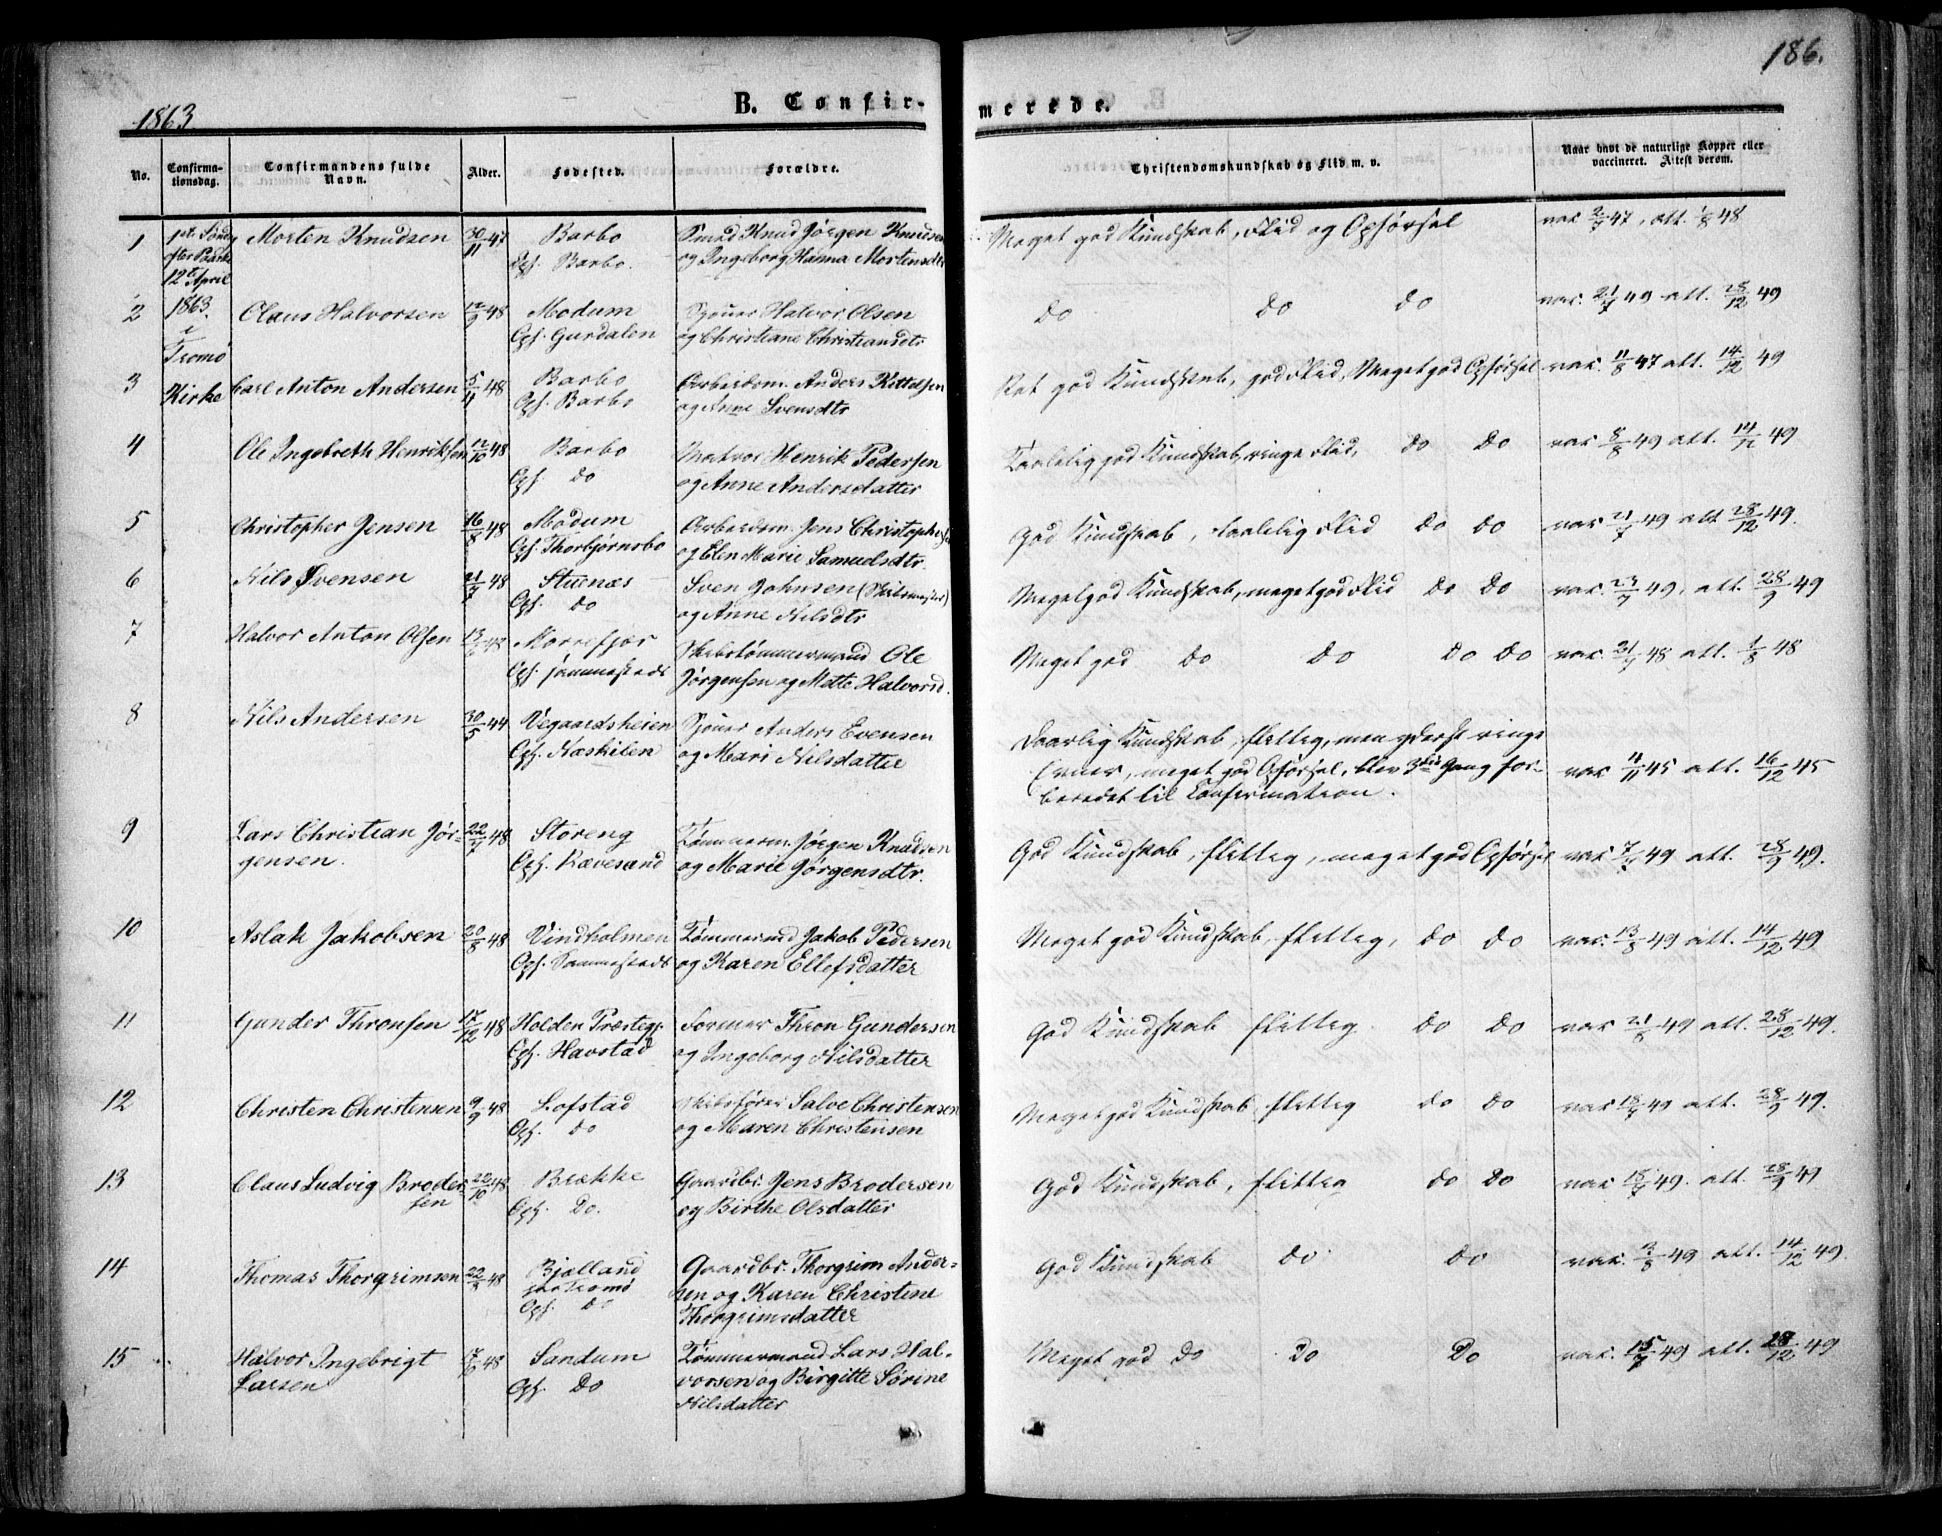 186.
1863
B. Confir-
merede.
No.
Confirma-
tionsdag.
Confirmandens fulde
Navn.
Alder.
Fødested.
Forældre.
Christendomskundskab og Flid m. v.
Naar havt de naturlige Kopper eller
vaccineret. Attest derom.
1
1ste Sønd
efter Paaske
12te April
1863
i
Tromø
Kirke
Morten Knudsen
30/11 47
Barbo
Oph. Barbo.
Smed Knud Jørgen Knudsen
og Ingeborg Hanna Mortensdtr
Meget god Kundskab, Flid og Opførsel
vac. 2/7 47, att. 1/8 48
2
Claus Halvorsen
12/9 48
Modum
Oph. Gurdalen
Sjømd Halvor Olsen
og Christiane Christiansdtr
do do do
vac. 21/7 49 att. 28/12 49
3
Carl Anton Andersen
5/11 48
Barbo
Oph. Barbo
Arbeidsm. Anders Kittelsen
og Anne Svensdtr
Ret god Kundskab, god Flid, Meget god Opførsel
vac. 11/8 47 att. 14/12 49
4
Ole Ingebreth Henriksen
12/10 48
Barbo
Oph. do
Matros Henrik Pedersen
og Anne Andersdatter
Taalelig god Kundskab, ringe Flid, do do
vac. 8/8 49 att. 14/12 49
5
Christopher Jensen
16/8 48
Modum
Oph. Thorbjørnsbo
Arbeidsm. Jens Christophersen
og Elen Marie Samuelsdtr.
God Kundskab, taalelig Flid do do
vac. 21/7 49 att. 28/12 49.
6
Nils Svensen
48
Stuenæs
Oph. do
Sven Johnsen
og Anne Nilsdtr
Meget god Kundskab, meget god Flid do do
vac. 23/7 49, att. 28/9 49
7
Halvor Anton Olsen
48
Morrefjær
Oph. Sammestedt
Skibstømmermand Ole
Jørgensen og Mette Halvorsd.
Meget god do do do do
vac. 21/7 48 att. 1/8 48
8
Nils Andersen
30/5 44
Vegaardsheien
Oph. Næskilen
Sjømd Anders Evensen
og Mari Nilsdatter
Daarlig Kundskab, flittig, men yderst ringe
Evner, meget god Opførsel, blev 3die Gang for-
beredet til Confirmation.
vac 4/11 45 att. 16/12 45
9
Lars Christian Jør-
gensen.
22/7 48
Storeng
Oph. Rævesand
Tømmerm. Jørgen Knudsen
og Marie Jørgensdtr.
God Kundskab, flittig, meget god Opførsel
vac 49 att. 28/9 49.
10
Aslak Jakobsen
20/8 48
Vindholmen
Oph. Sammestedt
Tømmermd Jakob Pedersen
og Karen Ellefsdatter
Meget god Kundskab, flittig, do do
vac. 13/8 49 att. 14/12 49
11
Gunder Thronsen
17/12 48
Holden Præstegj.
Oph. Havstad
Former Thron Gundersen
og Ingeborg Nilsdatter
God Kundskab flittig. do do
vac 21/8 49 att. 28/12 49.
12
Christen Christensen
9/9 48
Lofstad
Oph. do
Skibsfører Salve Christensen
og Maren Christensen
Meget god Kundskab, flittig do do
vac 18/7 49 att. 28/9 49.
13
Claus Ludvig Broder-
sen
22/10 48
Brække
Oph. Do.
Gaardbr. Jens Brodersen
og Birthe Olsdatter
God Kundskab, flittig do do
vac 18/7 49. att. 28/9 49
14
Thomas Thorgrimsen
48
Bjelland
paa Tromø
Oph. do
Gaardbr. Thorgrim Ander-
sen og Karen Christine
Thorgrimsdatter
God Kundskab do do
vac. 2/8 49 att. 14/12 49.
15
Halvor Ingebrigt
Larsen
48
Sandum
Oph. Do
Tømmermand Lars Hal-
vorsen og Birgitte Sørine
Nilsdatter
Meget god do Do Do
vac. 15/7 49 att. 28/12 49